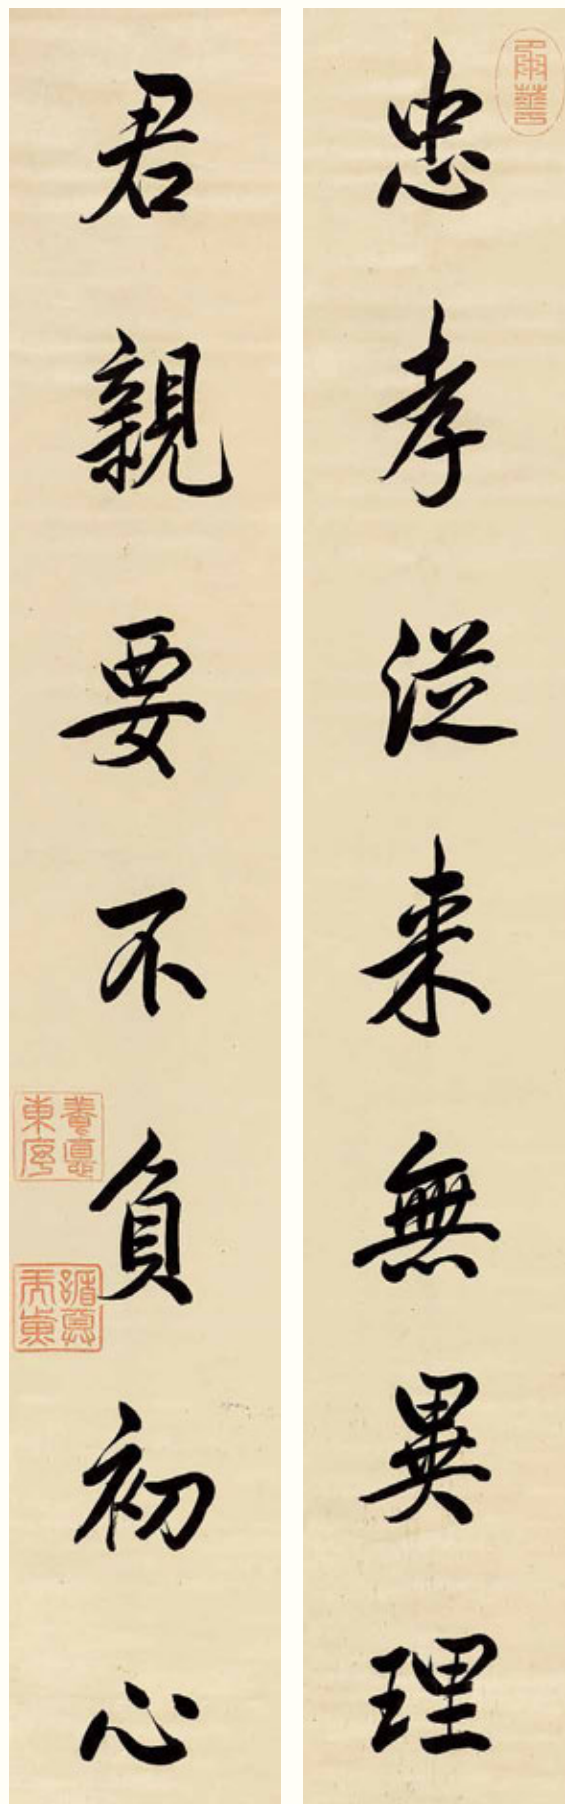 忠孝從来無異理
君親要不負初心